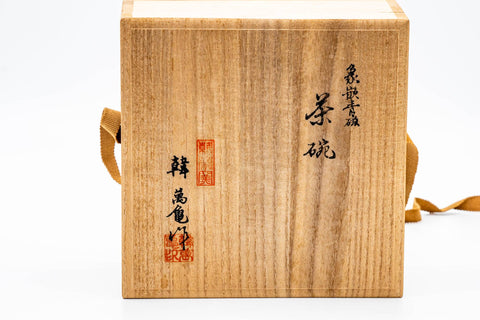 象嵌青磁
茶碗
韓萬亀作